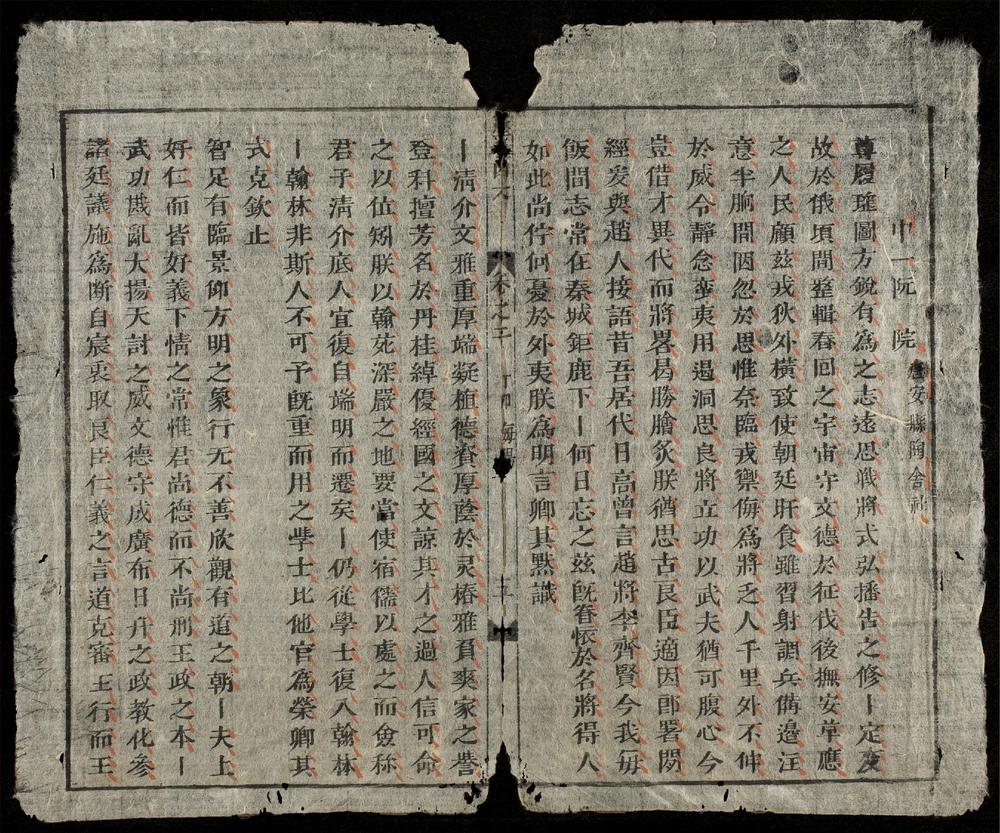 中一阮 院 安縣陶舍社
尊履瑤圖方銳有爲之志遠思戰將式弘播告之修丨定変
故於俄頃間整輯春回之宇宙守文德於征伐後撫安草應
之人民顧茲戎狄外橫致使朝廷旰食雖習射調兵俻邊注
意半胸間因忽於思惟奈臨戎禦侮爲將乏人千里外不伸
於威令靜念蛮夷用遏洞思良將立功以武夫猶可腹心今
豈借才異代而將畧曷勝膾炙朕猶思古良臣適因郎署問
經爰與趙人接語昔吾居代日高曾言趙將李齊賢今我毎
飯間志常在秦城鉅鹿下丨何日忘之茲旣眷懷於名將得人
如此尚佇何憂於外夷朕爲明言卿其黙識
丨清介文雅重厚端凝植德賚厚蔭於灵椿雅負奭家之譽
登科擅芳名於丹桂綽優經國之文諒其才之過人信可命
之以位矧朕以翰苑深嚴之地要當使宿儒以處之而僉称
君子清介底人宜復自端明而遷矣丨仍従學士復入翰林
丨翰林非斯人不可予旣重而用之斈士比他官爲榮卿其
式克欽止
智足有臨景仰方明之象行无不善欣觀有道之朝丨夫上
好仁而皆好義下情之常惟君尚德而不尚刑王政之本丨
武功戡亂大揚天討之威文德守成廣布日升之政教化參
諸廷議施爲断自宸衷取良臣仁義之言道克審王行而王